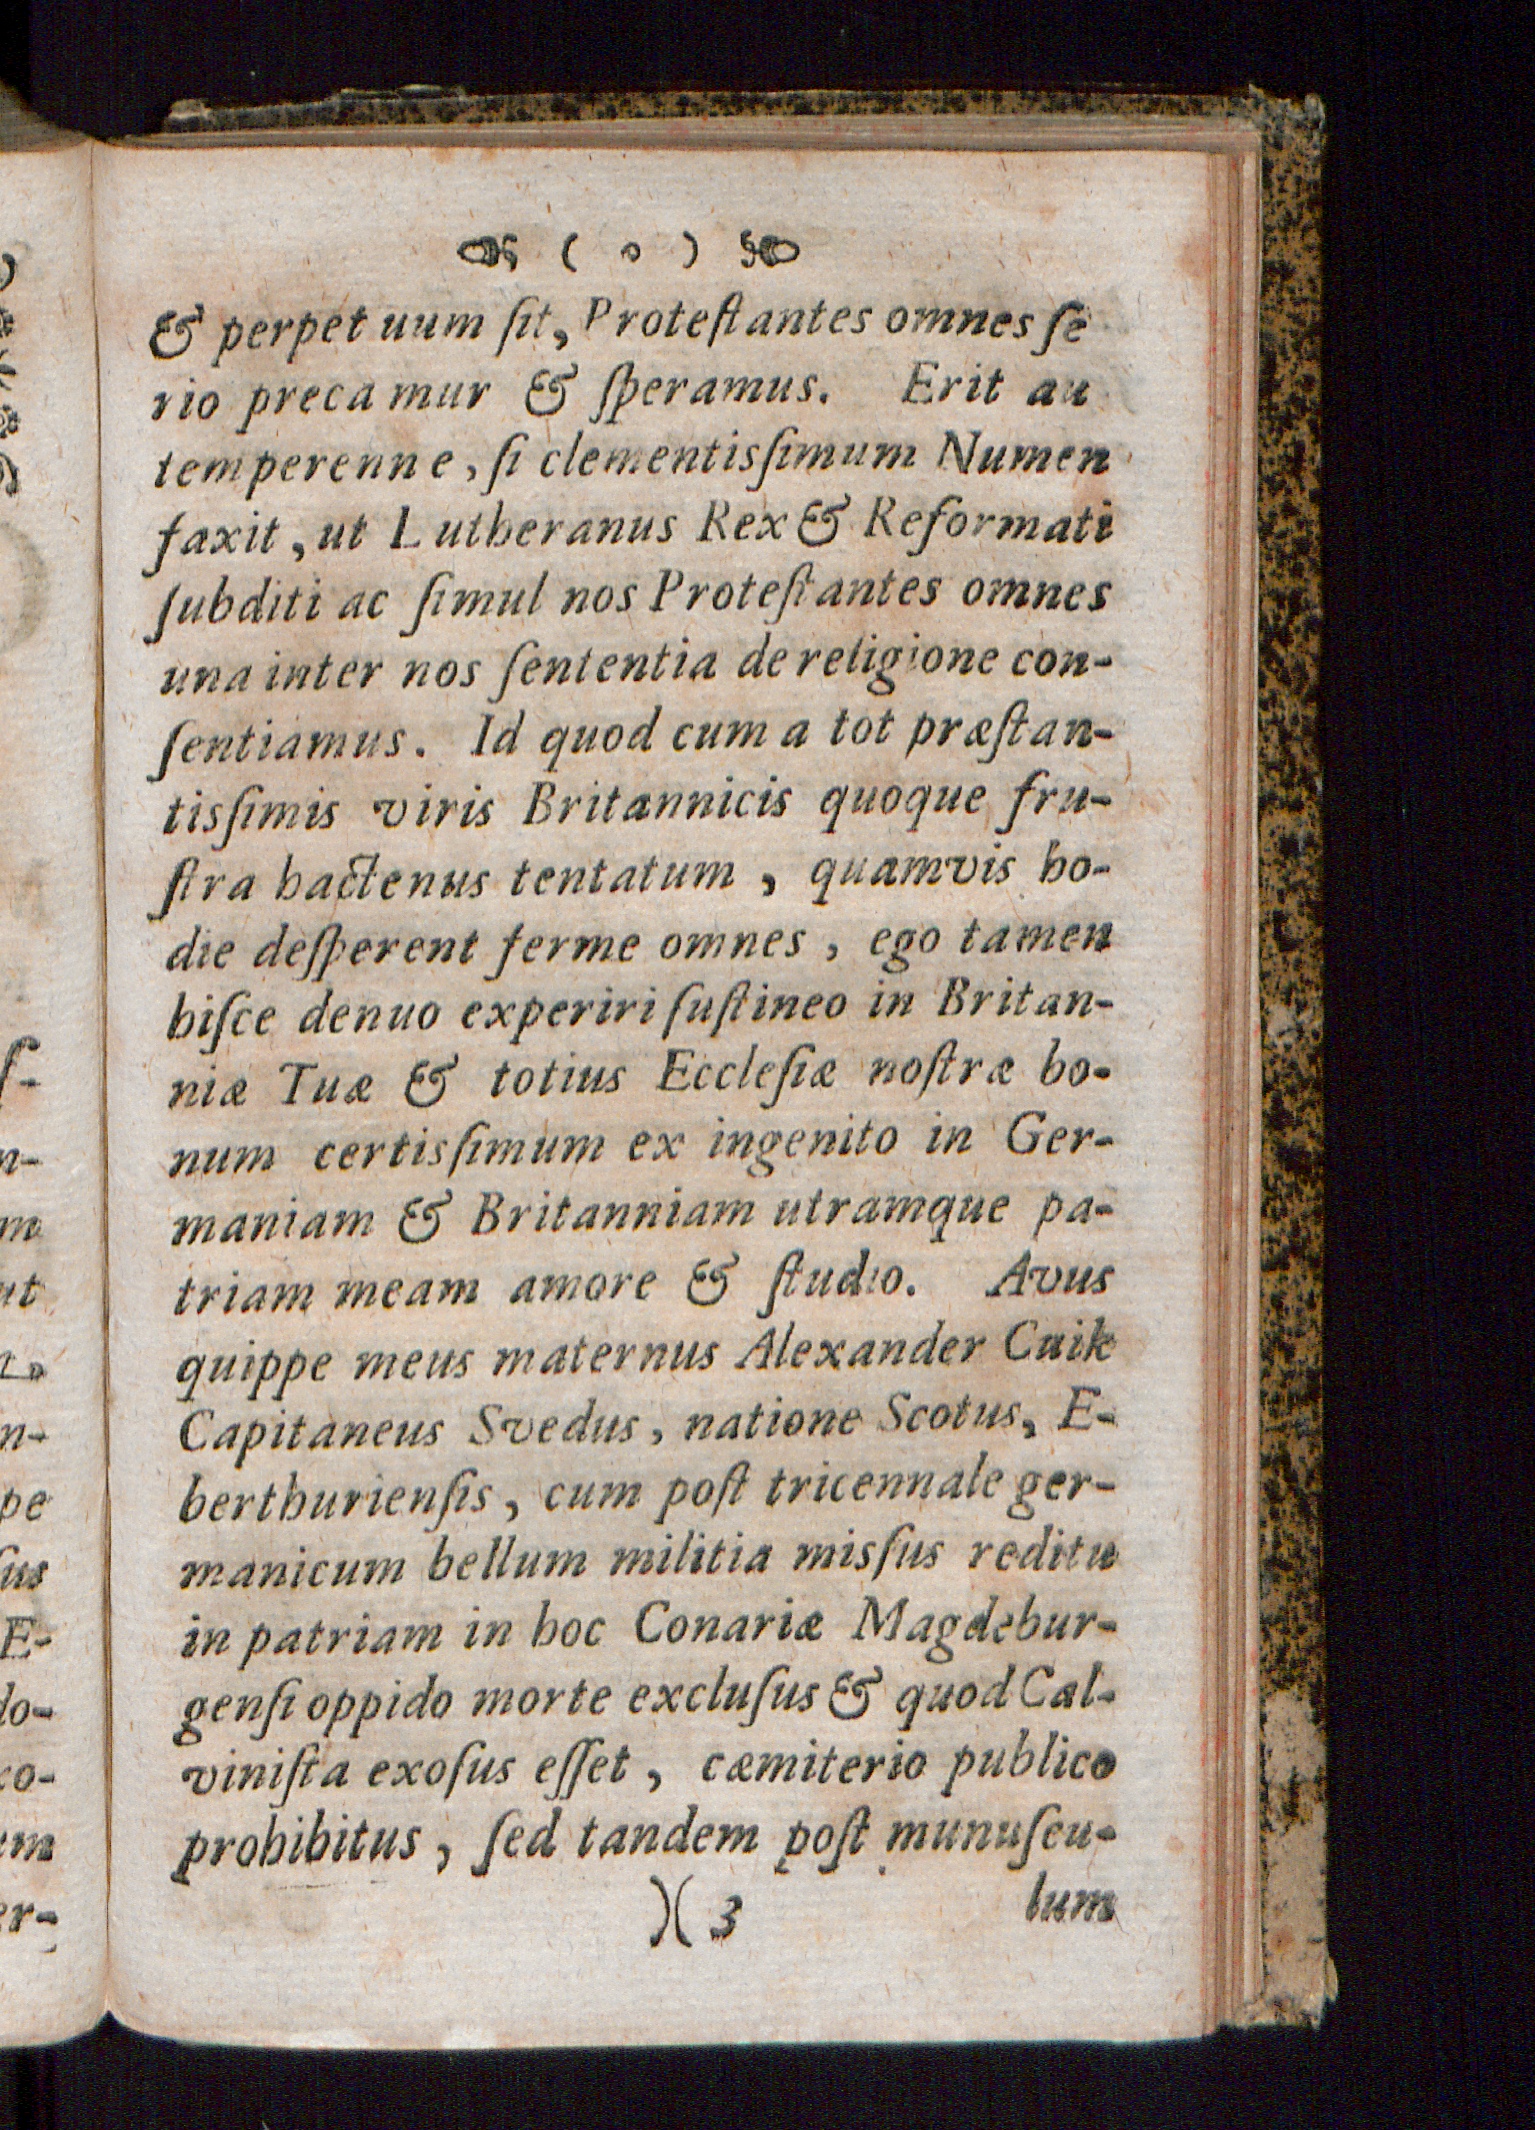 ( o )
& perpetuum ſit, Proteſtantes omnes ſe
rio precamur & ſperamus. Erit au
tem perenne, ſi clementisſimum Numen
faxit, ut Lutheranus Rex & Reformati
ſubditi ac ſimul nos Proteſtantes omnes
una inter nos ſententia de religione con-
ſentiamus. Id quod cum a tot præſtan-
tisſimis viris Britannicis quoque fru-
ſtra hactenus tentatum, quamvis ho-
die deſperent ferme omnes, ego tamen
hiſce denuo experiri ſuſtineo in Britan-
niæ Tuæ & totius Eccleſiæ noſtræ bo-
num certisſimum ex ingenito in Ger-
maniam & Britanniam utramque pa-
triam meam amore & ſtudio. Avus
quippe meus maternus Alexander Cuik
Capitaneus Svedus, natione Scotus, E-
berthurienſis, cum poſt tricennale ger-
manicum bellum militia misſus reditu
in patriam in hoc Conariæ Magdebur-
genſi oppido morte excluſus & quod Cal-
viniſta exoſus eſſet, cæmiterio publico
prohibitus, ſed tandem poſt munuſcu-
)( 3 lum